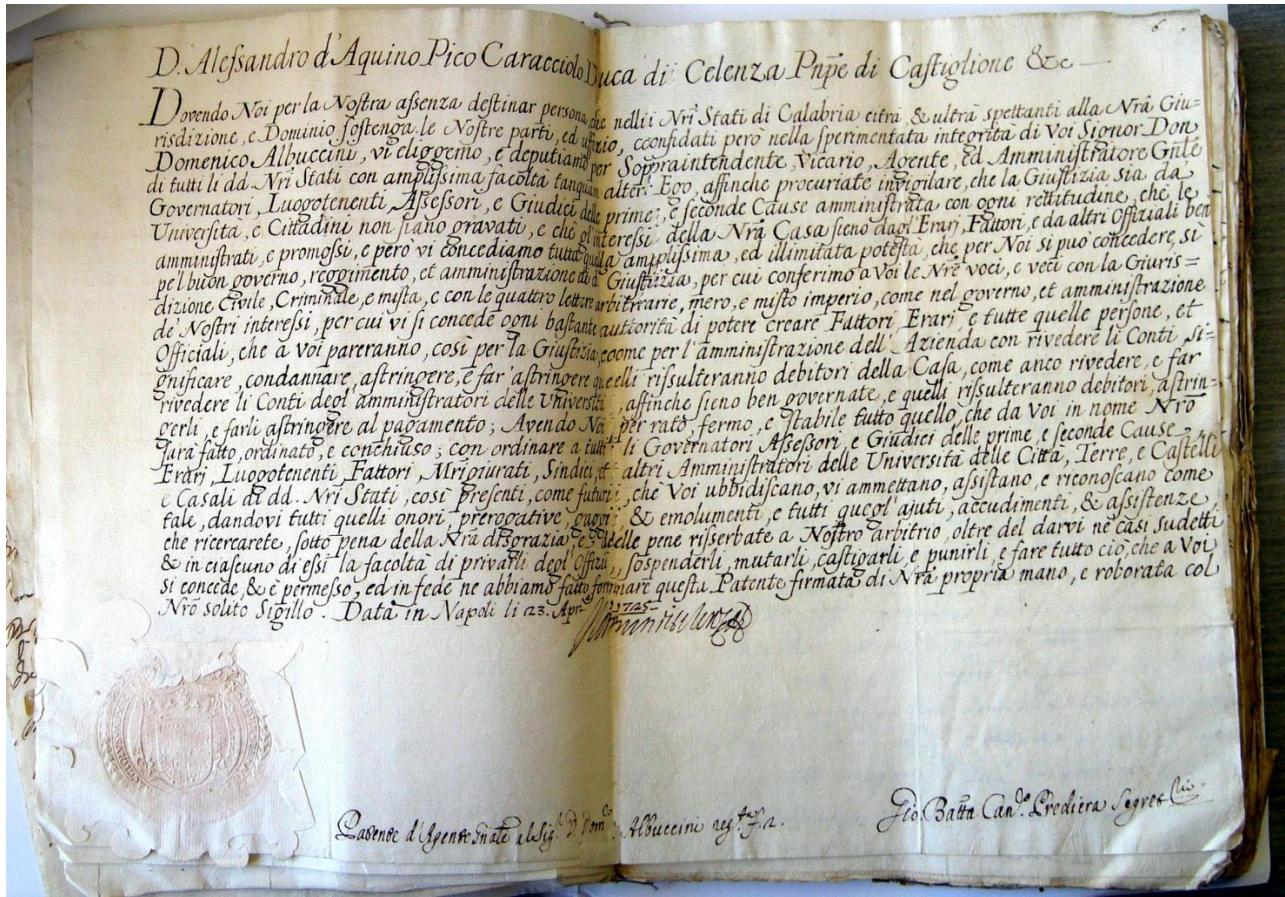 6.
D. Alessandro d'Aquino Pico Caracciolo Duca di Celenza Pnp̃e di Castiglione &c
Dovendo Noi per la Nostra assenza destinar persona, che nelli Nri Stati di Calabria citra, & ultra spettanti alla Nrã Giu=
risdizione, e Dominio sostenga le Nostre parti, ed uffizio, cconfidati però nella sperimentata integrità di Voi Signor Don
Domenico Albuccini, vi eliggemo, e deputiamo per Sopraintendente, Vicario, Agente, ed Amministratore Gñle
di tutti li dd. Nri Stati con amplissima facoltà tanquam alter Ego, affinche procuriate invigilare, che la Giustizia sia da
Governatori, Luogotenenti, Assessori, e Giudici delle prime, e seconde Cause amministrata con ogni rettitudine, che le
Università, e Cittadini non siano gravati, e che gl'interessi della Nrã Casa sieno dagl'Erari, Fattori, e da altri Offiziali ben
amministrati, e promossi, e però vi concediamo tutta quella amplissima, ed illimitata potestà, che per Noi si può concedere, si
pe'l buon governo, reggimento, et amministrazione di Giustizia, per cui conferimo a Voi le Nrẽ voci, e veci con la Giuris=
dizione Civile, Criminale, e mista, e con le quattro lettere arbitrarie, mero, e misto imperio, come nel governo, et amministrazione
de' Nostri interessi, per cui vi si concede ogni bastante autorità di potere creare Fattori, Erarj, e tutte quelle persone, et
Officiali, che à voi pareranno, così per la Giustizia, come per l'amministrazione dell'Azienda con rivedere li Conti, si=
gnificare, condannare, astringere, e far'astringere quelli rissulteranno debitori della Casa, come anco rivedere, e far
rivedere li Conti degl'amministratori delle Università, affinche sieno ben governate, e quelli rissulteranno debitori, astrin=
gerli, e farli astringere al pagamento; Avendo Noi per rato, fermo, e stabile tutto quello, che da Voi in nome Nrõ
sarà fatto, ordinato, e conchiuso; con ordinare a tutti li Governatori Assessori, e Giudici delle prime, e seconde Cause
Erari, Luogotenenti, Fattori, Mrigiurati, Sindici, et altri Amministratori delle Università delle Città, Terre, e Castelli
e Casali de dd. Nri Stati, così presenti, come futuri, che Voi ubbidiscano, vi ammettano, assistano, e riconoscano come
tale, dandovi tutti quelli onori, prerogative, & emolumenti, e tutti quegl'ajuti, accudimenti, & assistenze,
che ricercarete, sotto pena della Nrã disgrazia, e delle pene risserbate a Nostro arbitrio, oltre del darvi ne casi sudetti
& in ciascuno di essi la facoltà di privarli degl'Offizii, sospenderli, mutarli, castigarli, e punirli, e fare tutto ciò, che a Voi
si concede, & è permesso, ed in fede ne abbiamo fatto formare questa Patente firmata di Nrã propria mano, e roborata col
Nrõ solito Sigillo. Data in Napoli li 23. Apr. 1725
Patente d'Agente Gñale al Sig.r D. Dom.co Albuccini
Gio. Batta Can.co Prediera Segret.rio